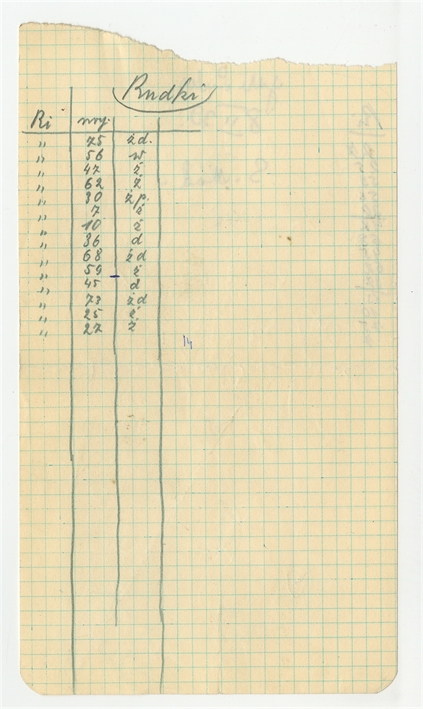 Rudki
Ri nory.
" 75 żd.
" 56 w
" 47 ż
" 62 ż
" 30 żp.
" 7 ż
" 10 ż
" 36 d
" 68 żd
" 59 ż
" 45 d
" 73 żd
" 25 ż
" 27 ż
14